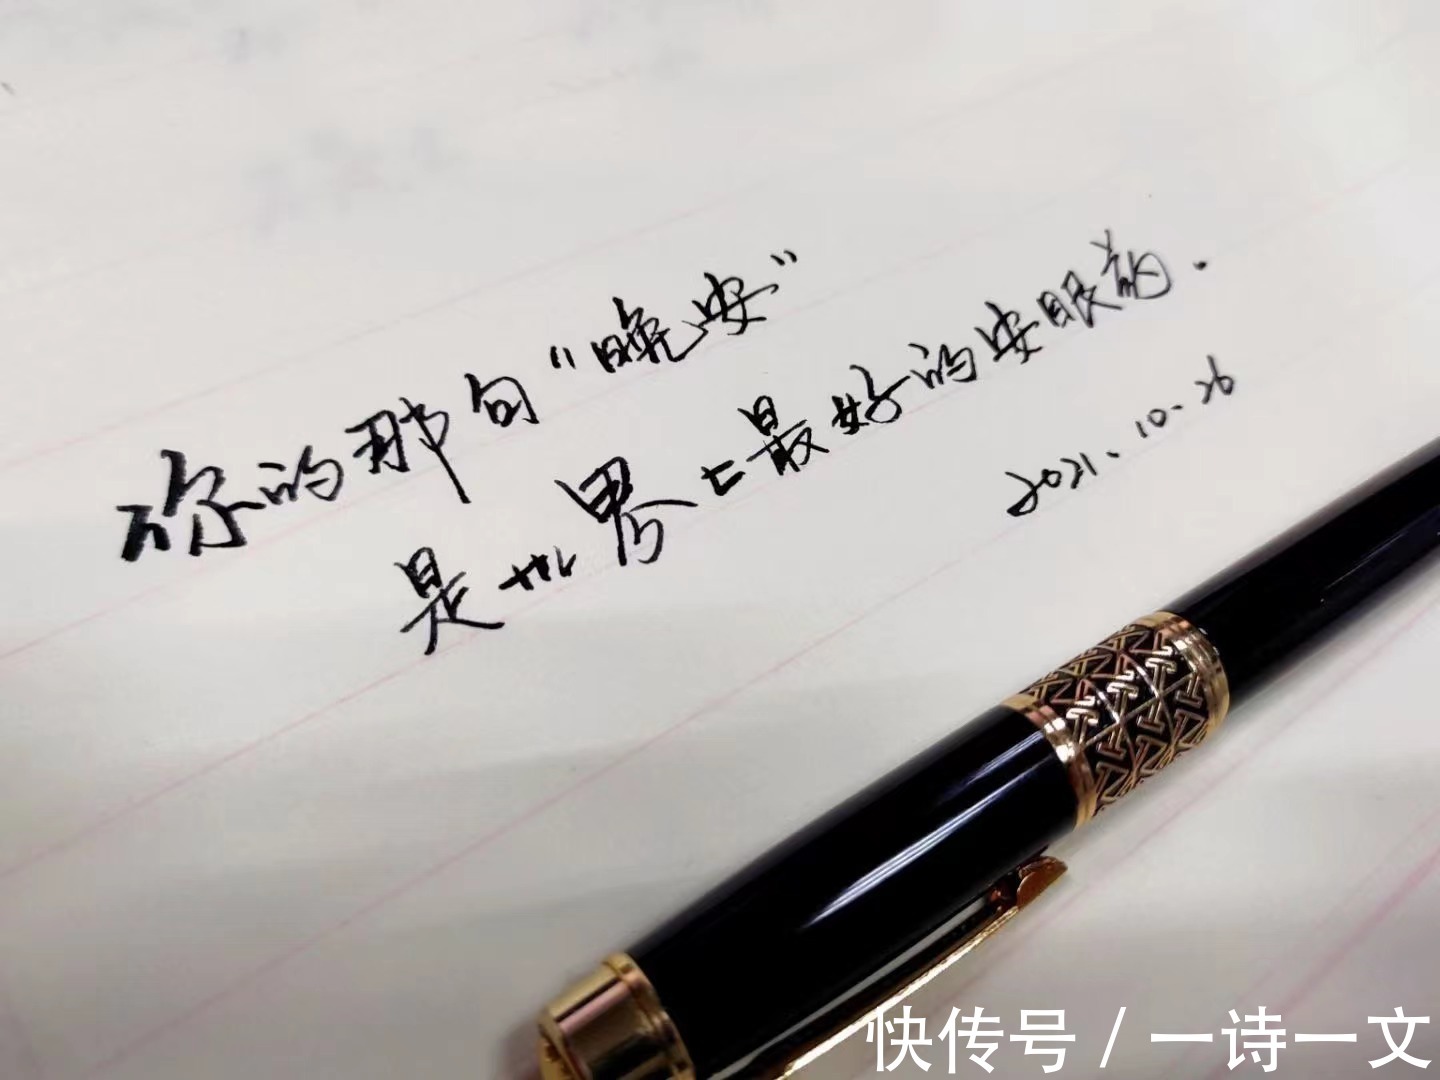 你的那句“晚安”
是世界上最好的安眠药.
2021.10.26
快传号 / 一诗一文